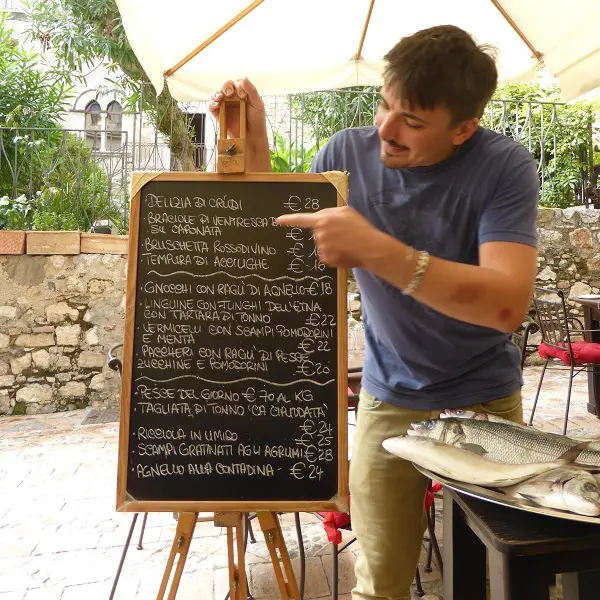 · DELIZIA DI CRUDI € 28
· BRACIOLE DI VENTRESCA
SU CAPONATA €
· BRUSCHETTA ROSSODIVINO €
TEMPURA DI ACCIUGHE €
· GNOCCHI CON RAGÙ DI AGNELLO € 18
· LINGUINE CON FUNGHI DELL'ETNA
CON TARTARA DI TONNO € 22
· VERMICELLI CON SCAMPI POMODORINI
E MENTA € 22
· PACCHERI CON RAGÙ DI PESCE
ZUCCHINE E POMODORINI € 20
· PESCE DEL GIORNO € 70 AL KG
· TAGLIATA DI TONNO
€ 24
· RICCIOLA IN UMIDO € 25
· SCAMPI GRATINATI AGLI AGRUMI € 28
· AGNELLO ALLA CONTADINA - € 24